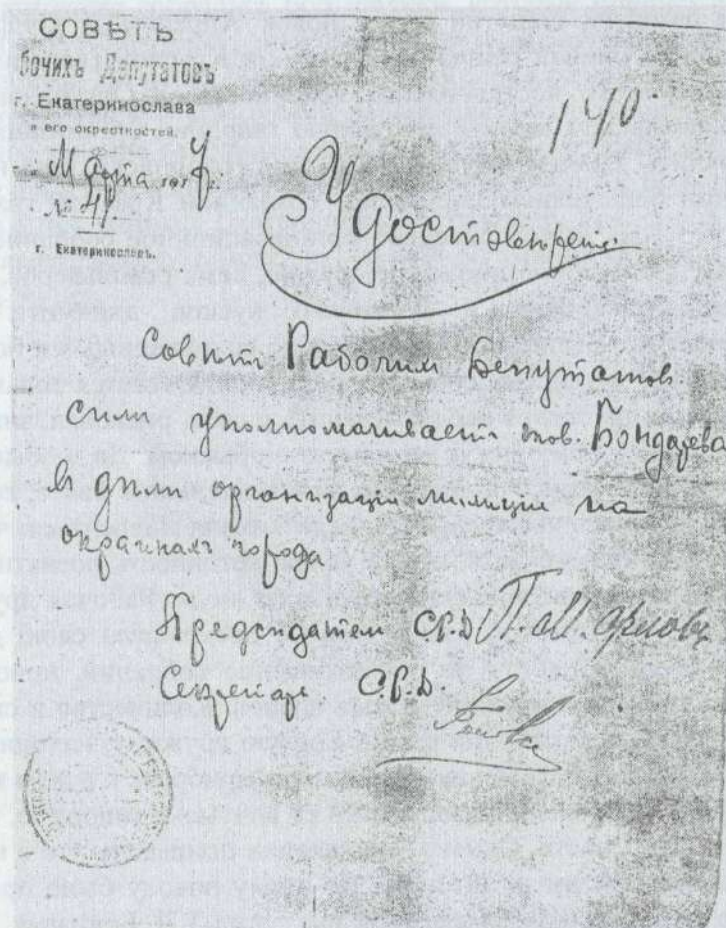 СОВѢТЪ
бочихъ Депутатовъ
г. Екатеринослава
и его окрестностей.
Марта 1917 г.
№ 41
г. Екатеринославъ.
140.
Удостовѣреніе.
Совѣтъ Рабочих Депутатов
сим уполномачиваетъ тов. Бондарева
в дѣлѣ организаціи милиціи на
окраинахъ города
Председатель С.Р.Д.
Секретарь С.Р.Д.